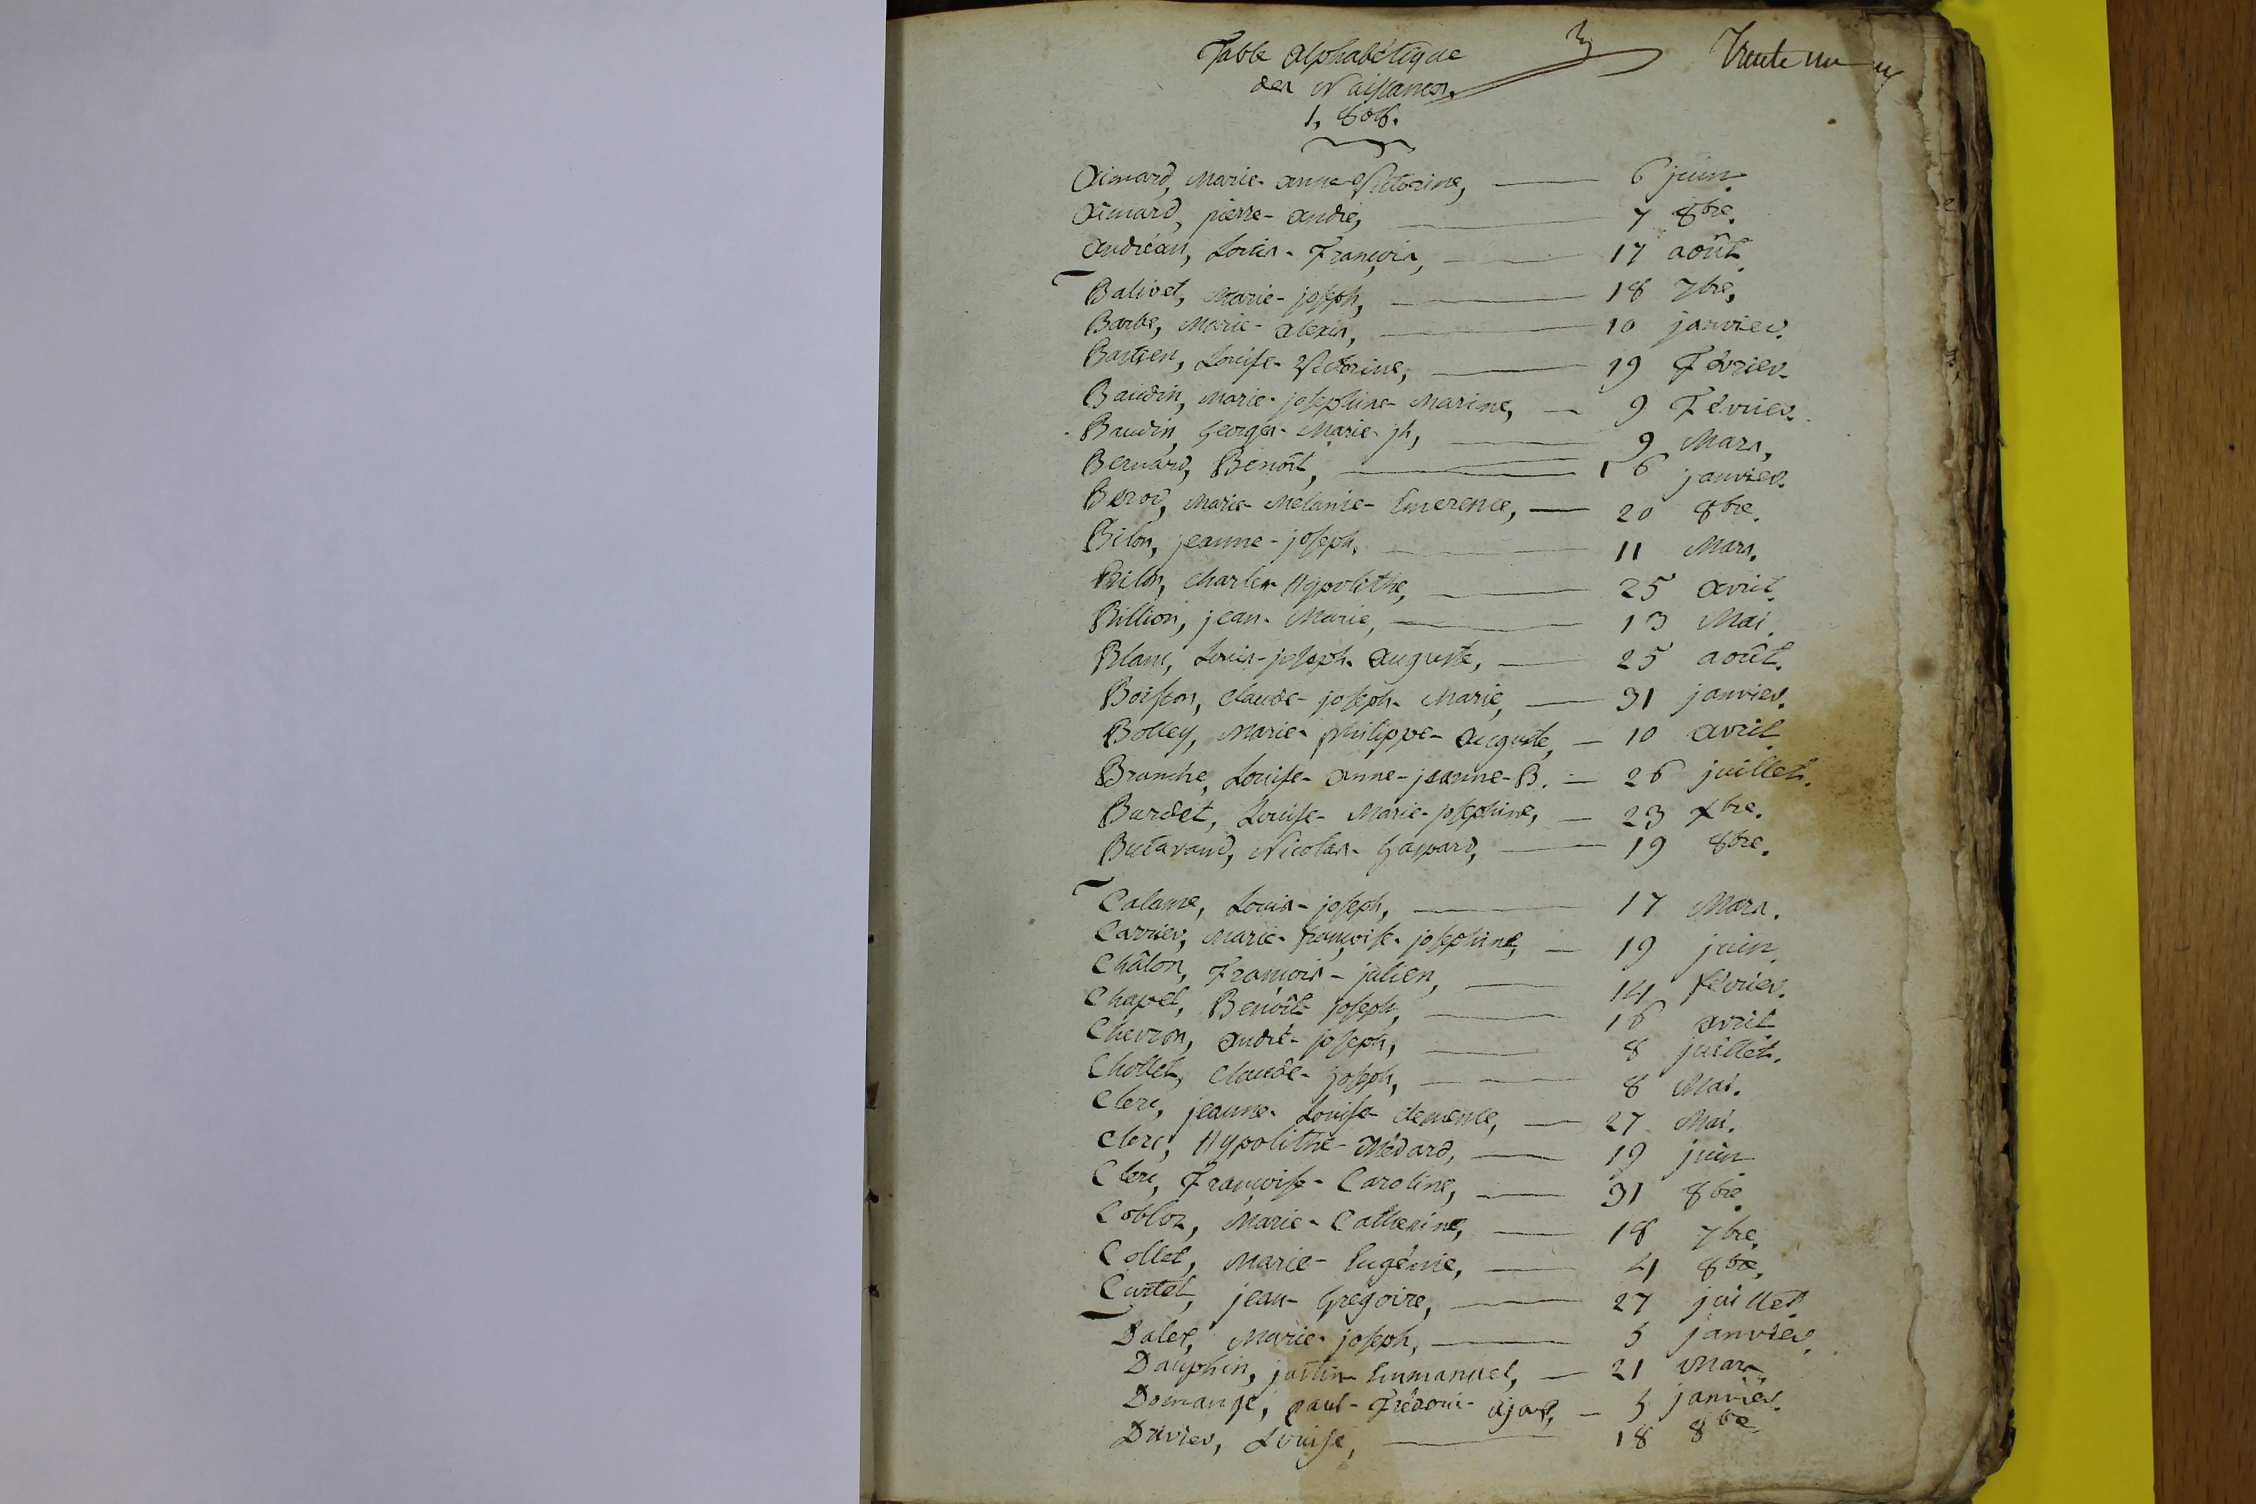 Table alphabétique
des Naissances
1,808.
Trente un
Aimard, Marie-anne-Victorine, 6 juin
Aimard, pierre-andré, 7 8bre.
Andréan, Louis-François, 17 août.
Balivet, Marie-joseph, 18 7bre,
Barbe, Marie-alexis, 10 janvier.
Bastien, Louise-Victorine, 19 Février
Baudin, Marie-josephine-Marine, 9 Février.
Baudin, Georges-Marie-jh, 9 Mars,
Bernard, Benoît, 16 janvier.
Berod, Marie-Mélanie-Emerence, 20 8bre.
Bilon, jeanne-joseph, 11 Mars.
Bilon, Charles-Hypolithe, 25 avril.
Billion, jean-Marie, 13 Mai.
Blanc, Louis-joseph-auguste, 25 août.
Boisson, Claude-joseph-Marie, 31 janvier.
Bolley, Marie-philippe-auguste, 10 avril
Branche, Louise-anne-jeanne-B. 26 juillet.
Burdet, Louise-Marie-josephine, 23 Xbre.
Butavand, Nicolas-Gaspard, 19 8bre.
Calame, Louis-joseph, 17 Mars.
Carrier, Marie-françoise-josephine, 19 juin.
Châlon, François-julien, 14 février.
Chapet, Benoît-joseph, 16 avril
Chevron, andré-joseph, 8 juillet.
Chollet, Claude-joseph, 8 Mai.
Clerc, jeanne-Louise-clemence, 27 Mai.
Clerc, Hypolithe-Médard, 19 juin
Clerc, Françoise-Caroline, 31 8bre
Cobloz, Marie-Catherine, 18 7bre,
Collet, Marie-Eugénie, 4 8bre,
Curtet, jean-Gregoire, 27 juillet.
Dalex, Marie-joseph, 5 janvier.
Dauphin, justin-Emmanuel, 21 Mars,
Domange, paul-Frédéric- 5 janvier.
Druier, Louise, 18 8bre